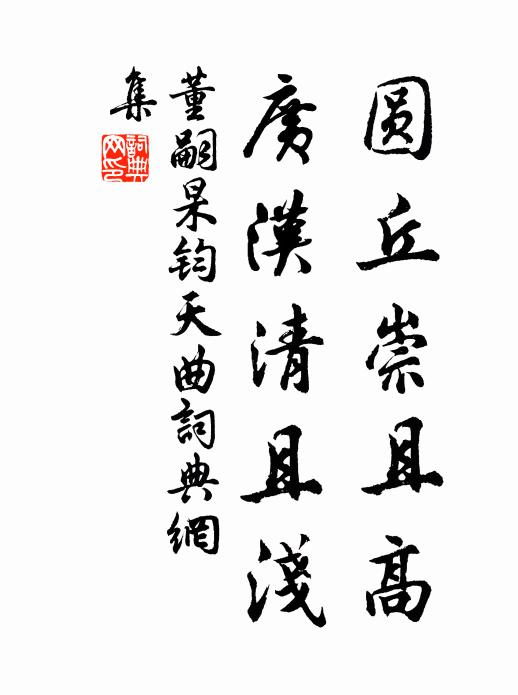 圆丘崇且高
廣漢清且淺
董嗣杲钧天曲詞典網
集
詞典
网印